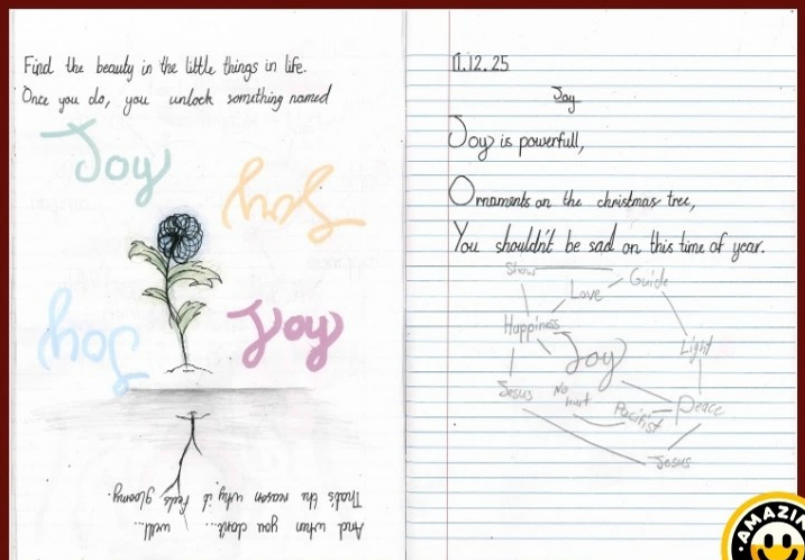 Find the beauty in the little things in life.
Once you do, you unlock something named
Joy
Joy
Joy
Joy
And when you don't... well...
That's the reason why it feels gloomy.
11.12.25
Joy
Joy is powerfull,
Ornaments on the christmas tree,
You shouldn't be sad on this time of year.
Show
Guide
Love
Happiness
Light
Joy
Jesus
No
hurt
Pacifist
Peace
Jesus
AMAZIN